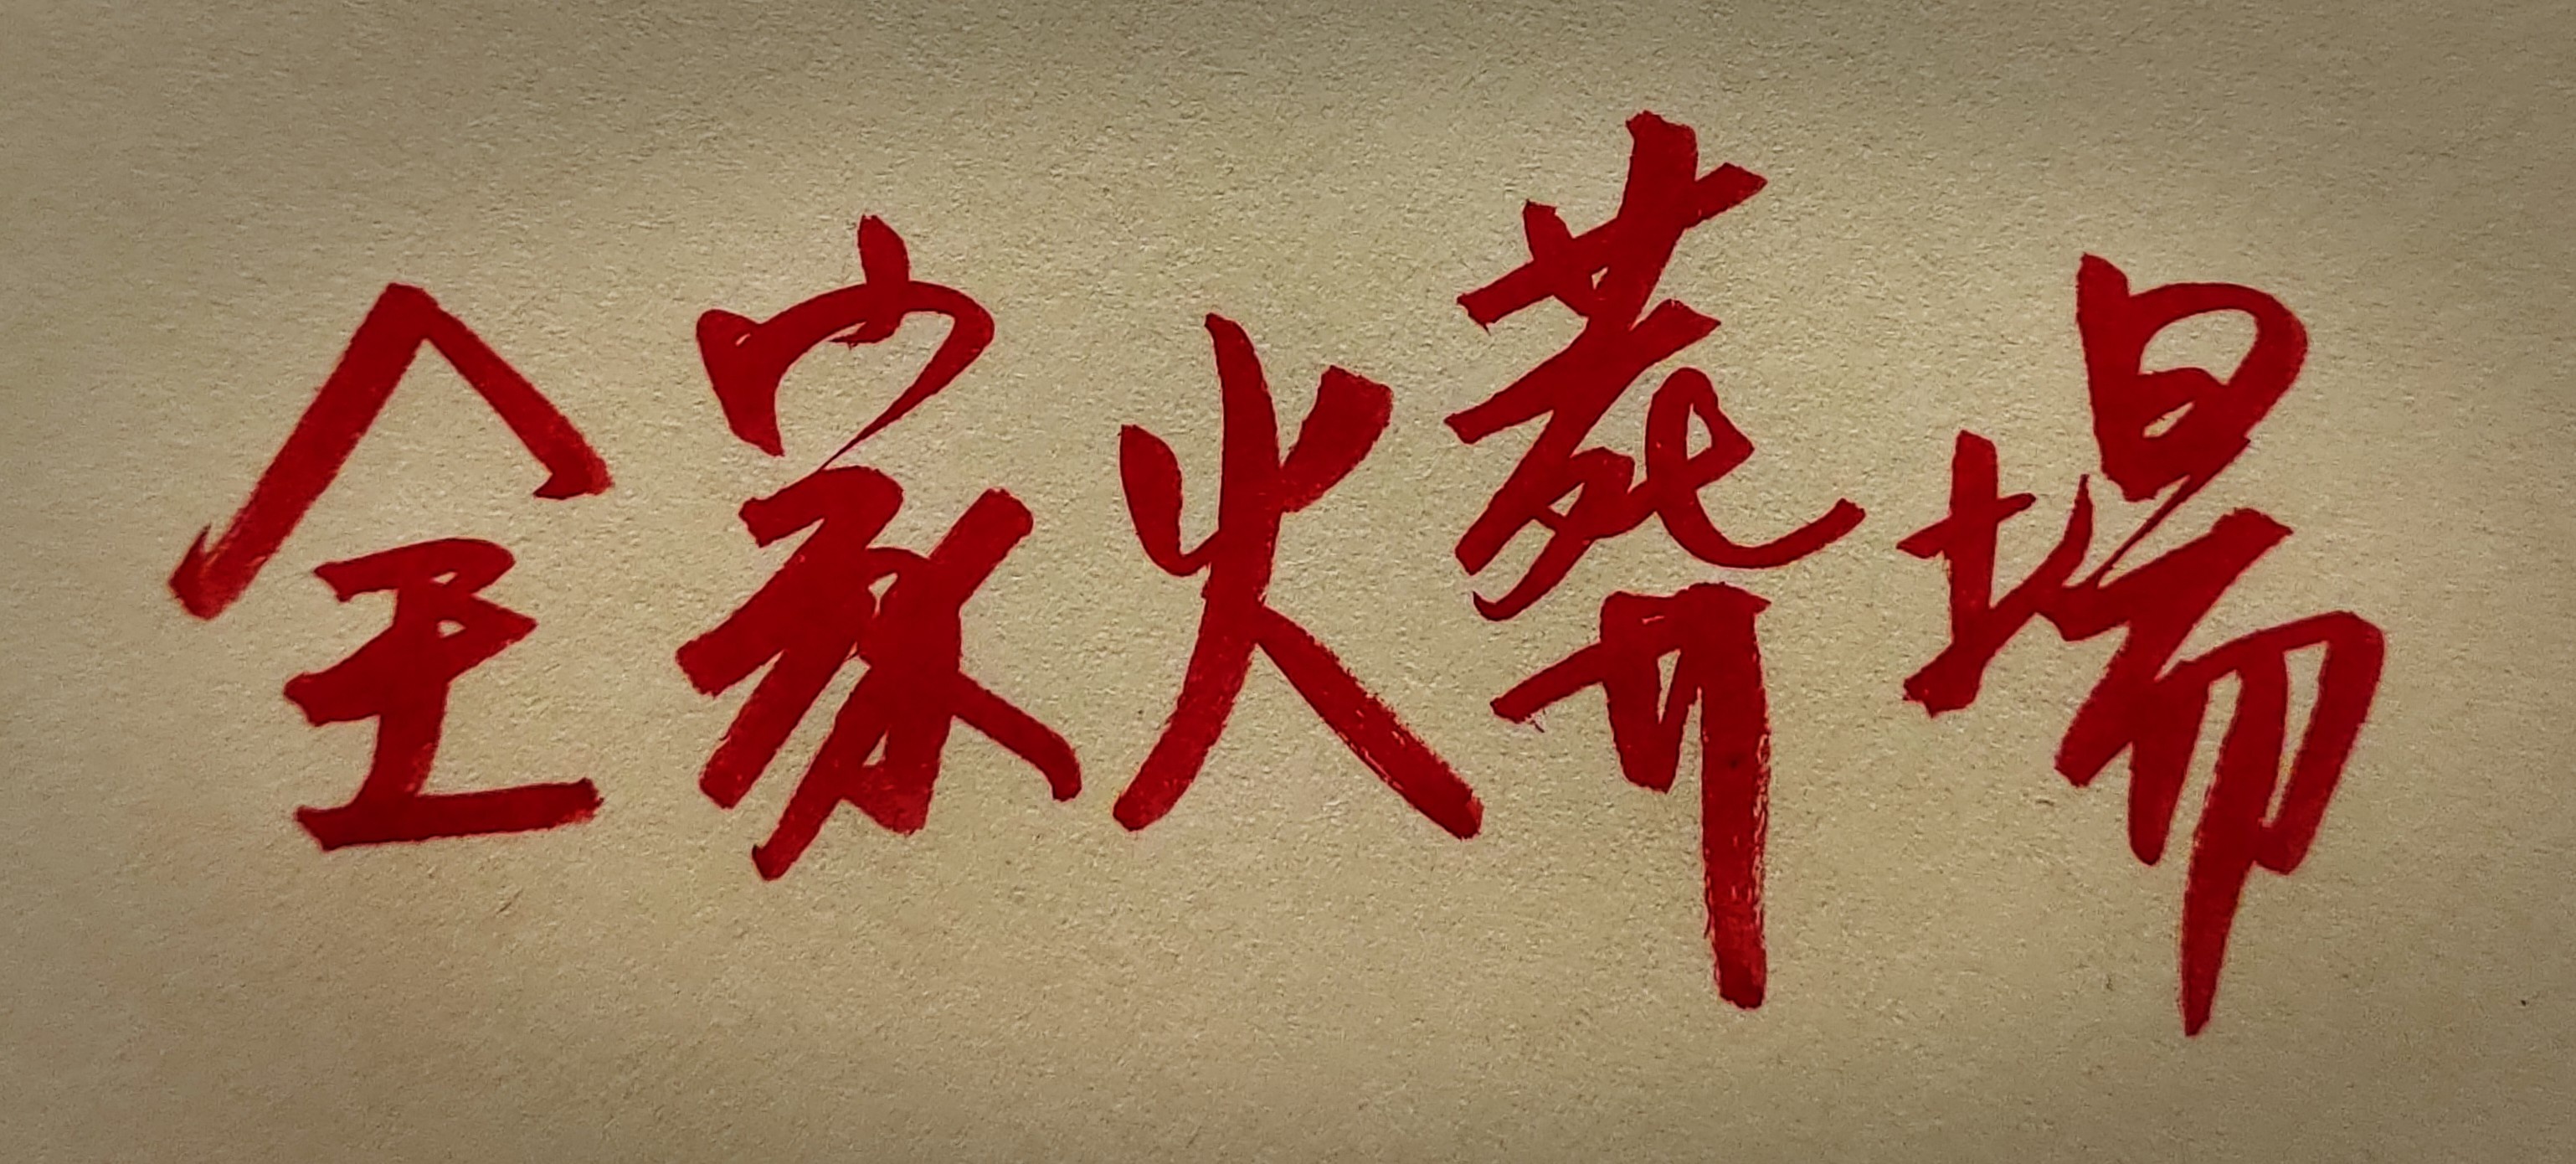 全家火葬場